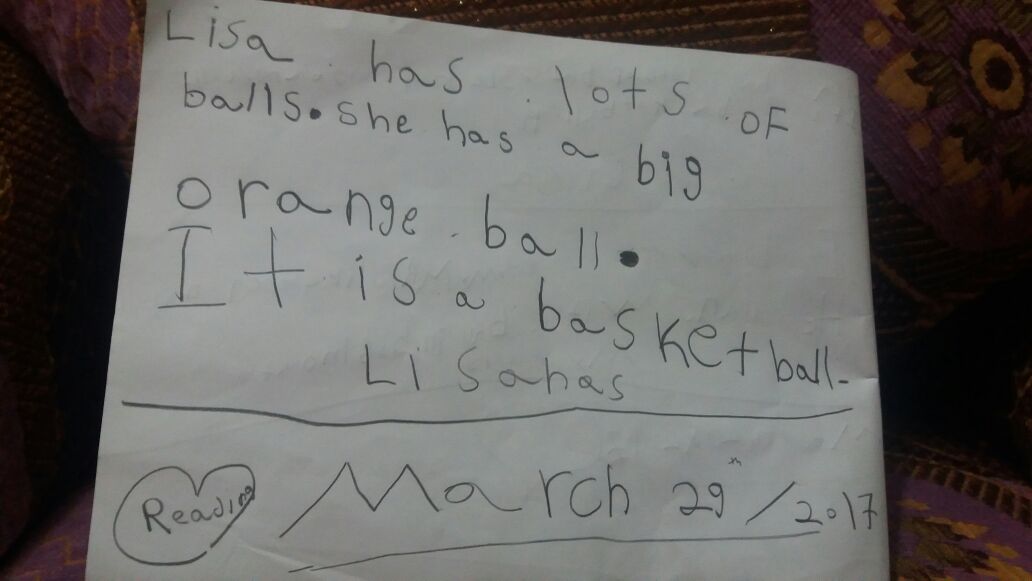 Lisa has lots of
balls. she has a big
orange ball.
It is a basketball.
Lisahas
Reading
March 29th/2017